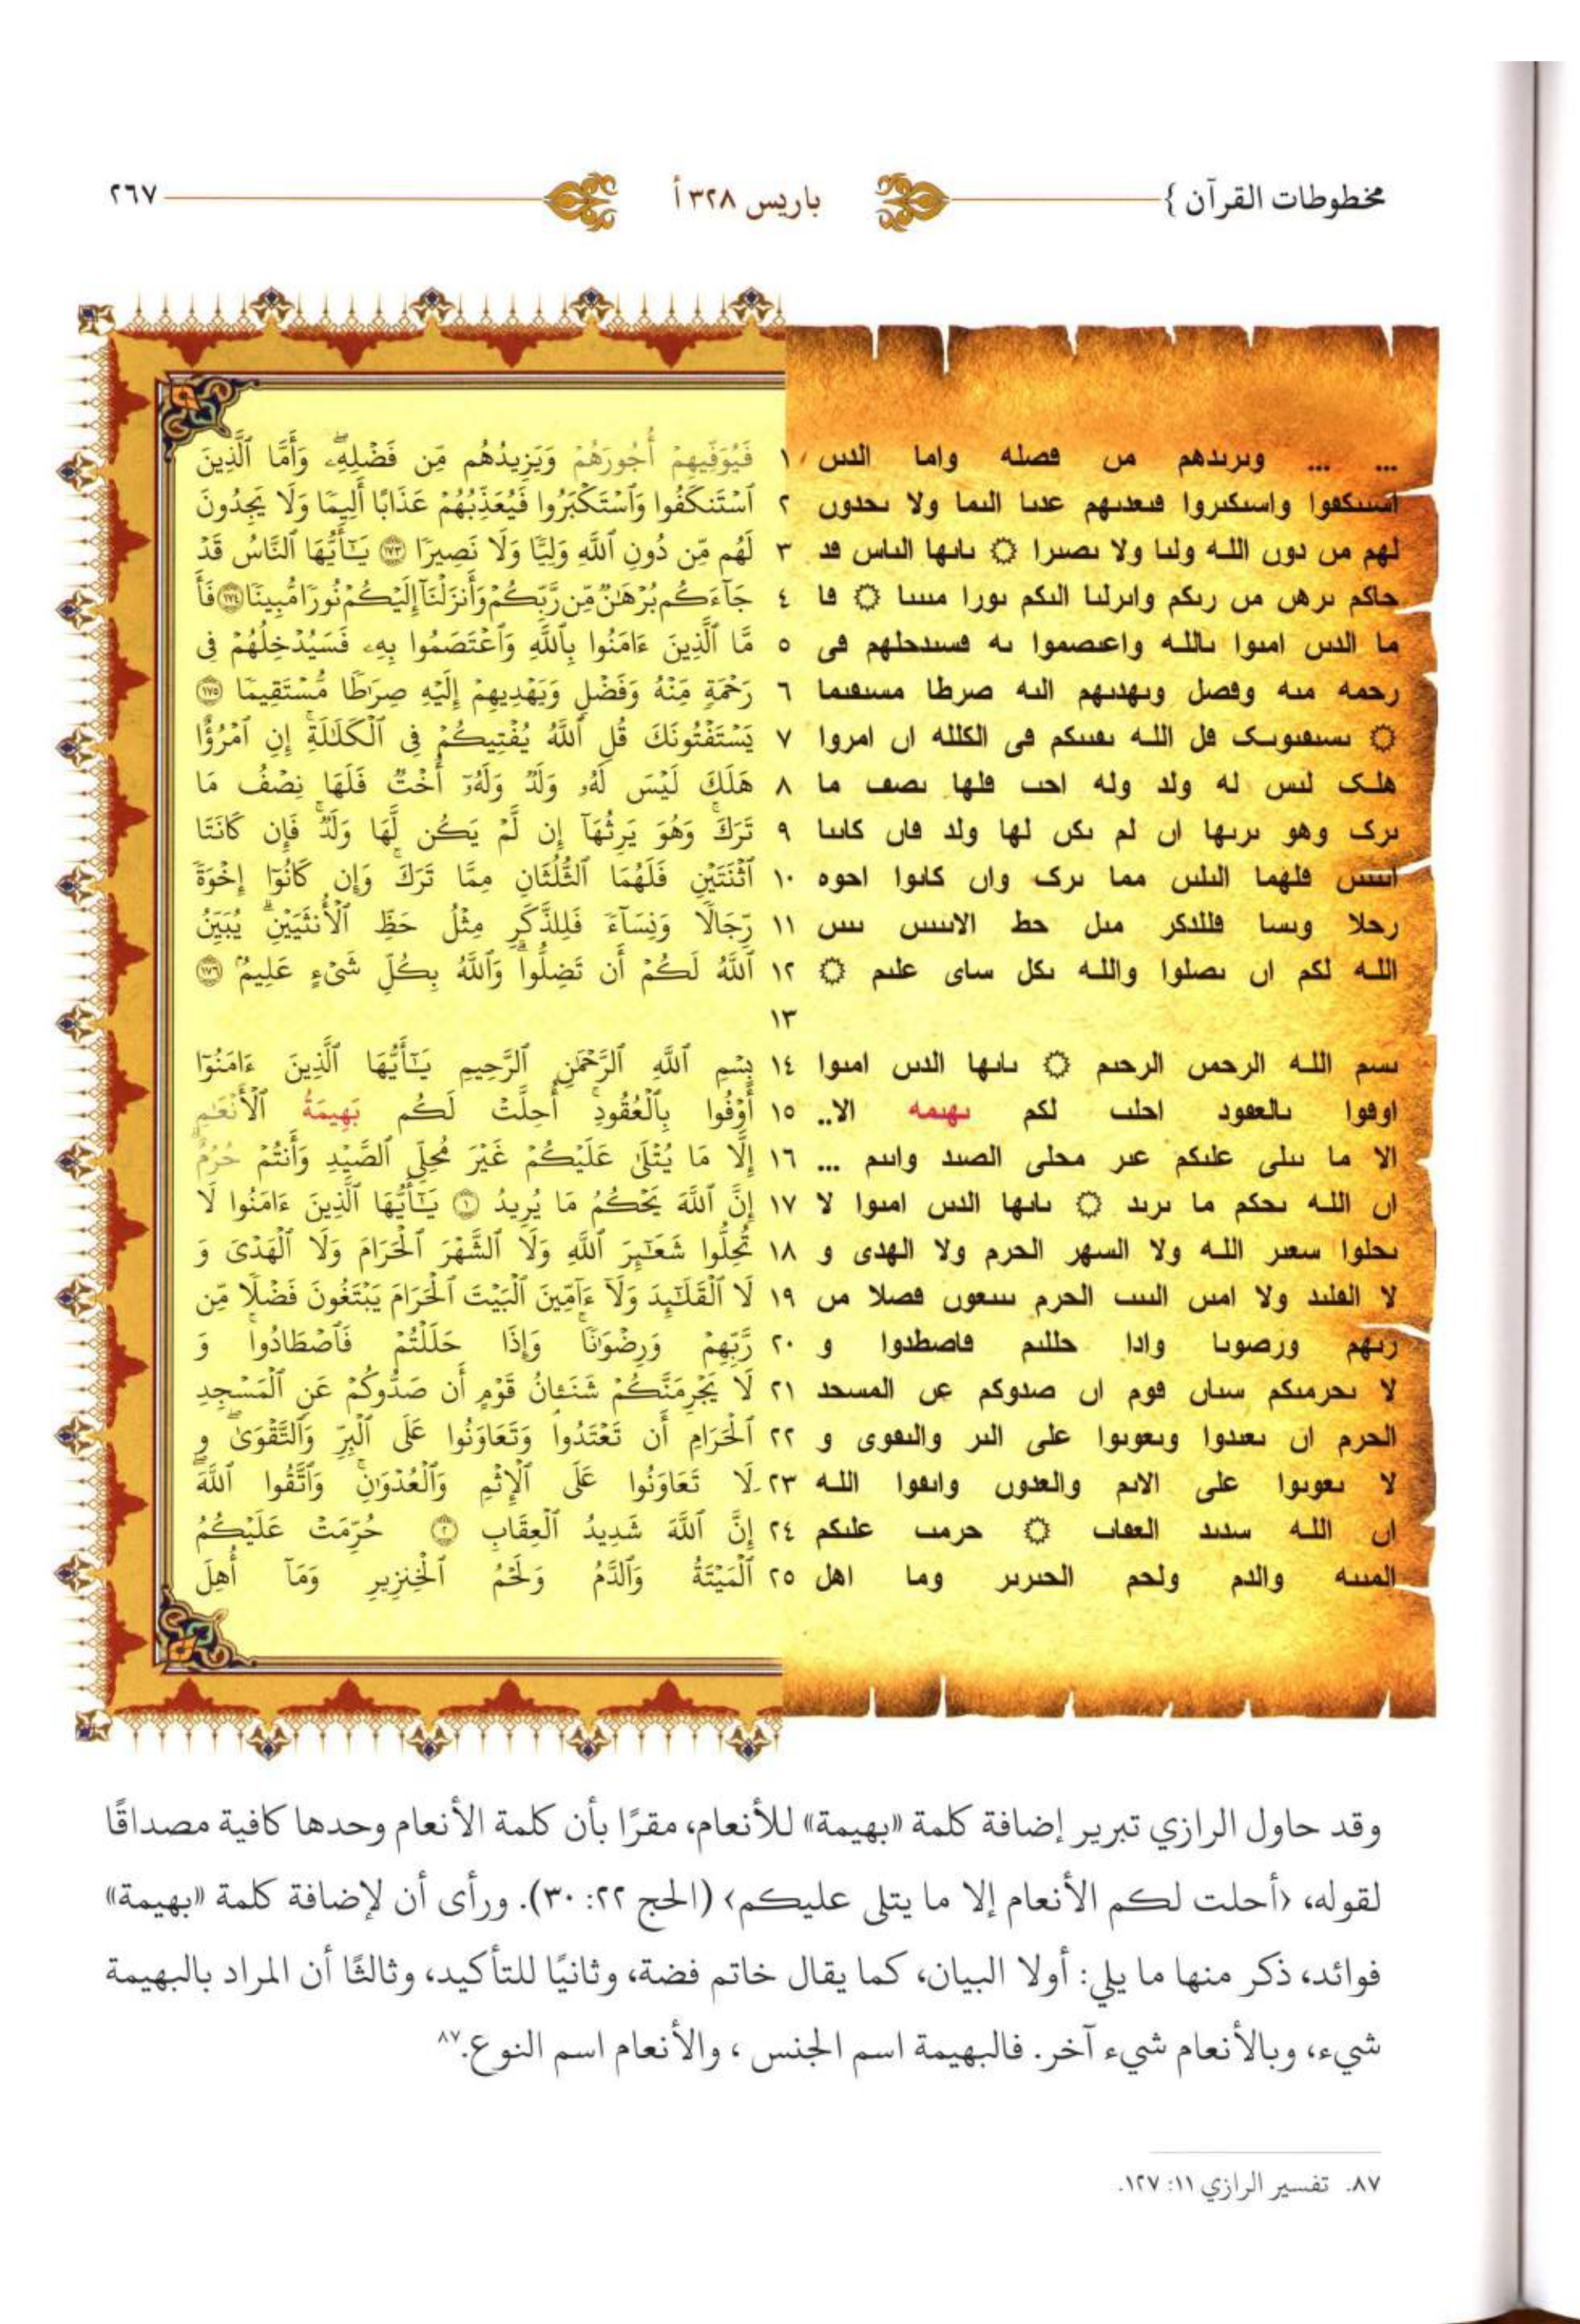 مخطوطات القرآن } باريس ٣٢٨ أ ٢٦٧
... ... وىرىدهم من فصله واما الدىں ١ فَيُوَفِّيهِمْ أُجُورَهُمْ وَيَزِيدُهُم مِّن فَضْلِهِۦۖ وَأَمَّا ٱلَّذِينَ
اسىىكفوا واسىكىروا فىعدىهم عدىا الىما ولا ىحدوں ٢ ٱسْتَنكَفُوا وَٱسْتَكْبَرُوا فَيُعَذِّبُهُمْ عَذَابًا أَلِيمًا وَلَا يَجِدُونَ
لهم مں دوں الله ولىا ولا ىصىرا ۞ ىاىها الىاس ڡد ٣ لَهُم مِّن دُونِ ٱللَّهِ وَلِيًّا وَلَا نَصِيرًا ١٧٣ يَـٰٓأَيُّهَا ٱلنَّاسُ قَدْ
حاكم ىرهں مں رىكم واىرلىا الىكم ىورا مىىىا ۞ ڡا ٤ جَآءَكُم بُرْهَـٰنٌ مِّن رَّبِّكُمْ وَأَنزَلْنَآ إِلَيْكُمْ نُورًا مُّبِينًا ١٧٤ فَأَ
ما الدىں امىوا ىالله واعىصموا ىه ڡسىدحلهم ڡى ٥ مَّا ٱلَّذِينَ ءَامَنُوا بِٱللَّهِ وَٱعْتَصَمُوا بِهِۦ فَسَيُدْخِلُهُمْ فِى
رحمه مىه وڡصل وىهدىهم الىه صرطا مسىڡىما ٦ رَحْمَةٍ مِّنْهُ وَفَضْلٍ وَيَهْدِيهِمْ إِلَيْهِ صِرَٰطًا مُّسْتَقِيمًا ١٧٥
۞ ىسىڡىوىک ڡل الله ىڡىىكم ڡى الكلله اں امروا ٧ يَسْتَفْتُونَكَ قُلِ ٱللَّهُ يُفْتِيكُمْ فِى ٱلْكَلَـٰلَةِۚ إِنِ ٱمْرُؤٌا
هلک لىس له ولد وله احٮ ڡلها ىصڡ ما ٨ هَلَكَ لَيْسَ لَهُۥ وَلَدٌ وَلَهُۥٓ أُخْتٌ فَلَهَا نِصْفُ مَا
ىرک وهو ىرىها اں لم ىكں لها ولد ڡاں كاىىا ٩ تَرَكَۚ وَهُوَ يَرِثُهَآ إِن لَّمْ يَكُن لَّهَا وَلَدٌۚ فَإِن كَانَتَا
اىىىىں ڡلهما الىلىں مما ىرک واں كاىوا احوه ١٠ ٱثْنَتَيْنِ فَلَهُمَا ٱلثُّلُثَانِ مِمَّا تَرَكَۚ وَإِن كَانُوٓا إِخْوَةً
رحلا وىسا ڡللدكر مىل حط الاىىىىں ىىىں ١١ رِّجَالًا وَنِسَآءً فَلِلذَّكَرِ مِثْلُ حَظِّ ٱلْأُنثَيَيْنِۗ يُبَيِّنُ
الله لكم اں ىصلوا والله ىكل ساى علىم ۞ ١٢ ٱللَّهُ لَكُمْ أَن تَضِلُّوا۟ۗ وَٱللَّهُ بِكُلِّ شَىْءٍ عَلِيمٌۢ ١٧٦
١٣
ىسم الله الرحمں الرحىم ۞ ىاىها الدىں امىوا ١٤ بِسْمِ ٱللَّهِ ٱلرَّحْمَـٰنِ ٱلرَّحِيمِ يَـٰٓأَيُّهَا ٱلَّذِينَ ءَامَنُوٓا
اوڡوا ىالعڡود احلٮ لكم ىهىمه الا.. ١٥ أَوْفُوا بِٱلْعُقُودِۚ أُحِلَّتْ لَكُم بَهِيمَةُ ٱلْأَنْعَـٰمِ
الا ما ىىلى علىكم عىر محلى الصىد واىىم ... ١٦ إِلَّا مَا يُتْلَىٰ عَلَيْكُمْ غَيْرَ مُحِلِّى ٱلصَّيْدِ وَأَنتُمْ حُرُمٌۗ
اں الله ىحكم ما ىرىد ۞ ىاىها الدىں امىوا لا ١٧ إِنَّ ٱللَّهَ يَحْكُمُ مَا يُرِيدُ ١ يَـٰٓأَيُّهَا ٱلَّذِينَ ءَامَنُوا لَا
ىحلوا سعىر الله ولا السهر الحرم ولا الهدى و ١٨ تُحِلُّوا شَعَـٰٓئِرَ ٱللَّهِ وَلَا ٱلشَّهْرَ ٱلْحَرَامَ وَلَا ٱلْهَدْىَ وَ
لا الڡلىد ولا امىں الىىٮ الحرم ىىىعوں ڡصلا مں ١٩ لَا ٱلْقَلَـٰٓئِدَ وَلَآ ءَآمِّينَ ٱلْبَيْتَ ٱلْحَرَامَ يَبْتَغُونَ فَضْلًا مِّن
رىهم ورصوىا وادا حللىم ڡاصطدوا و ٢٠ رَّبِّهِمْ وَرِضْوَٰنًاۚ وَإِذَا حَلَلْتُمْ فَٱصْطَادُوا۟ۚ وَ
لا ىحرمىكم سىاں ڡوم اں صدوكم عں المسحد ٢١ لَا يَجْرِمَنَّكُمْ شَنَـَٔانُ قَوْمٍ أَن صَدُّوكُمْ عَنِ ٱلْمَسْجِدِ
الحرم اں ىعىدوا وىعوىوا على الىر والىڡوى و ٢٢ ٱلْحَرَامِ أَن تَعْتَدُوا۟ۘ وَتَعَاوَنُوا عَلَى ٱلْبِرِّ وَٱلتَّقْوَىٰۖ وَ
لا ىعوىوا على الاىم والعدوں واىڡوا الله ٢٣ لَا تَعَاوَنُوا عَلَى ٱلْإِثْمِ وَٱلْعُدْوَٰنِۚ وَٱتَّقُوا ٱللَّهَۖ
اں الله سدىد العڡاٮ ۞ حرمٮ علىكم ٢٤ إِنَّ ٱللَّهَ شَدِيدُ ٱلْعِقَابِ ٢ حُرِّمَتْ عَلَيْكُمُ
المىىه والدم ولحم الحىرىر وما اهل ٢٥ ٱلْمَيْتَةُ وَٱلدَّمُ وَلَحْمُ ٱلْخِنزِيرِ وَمَآ أُهِلَّ
وقد حاول الرازي تبرير إضافة كلمة «بهيمة» للأنعام، مقرًا بأن كلمة الأنعام وحدها كافية مصداقًا
لقوله، ‹أحلت لكم الأنعام إلا ما يتلى عليكم› (الحج ٢٢: ٣٠). ورأى أن لإضافة كلمة «بهيمة»
فوائد، ذكر منها ما يلي: أولا البيان، كما يقال خاتم فضة، وثانيًا للتأكيد، وثالثًا أن المراد بالبهيمة
شيء، وبالأنعام شيء آخر. فالبهيمة اسم الجنس ، والأنعام اسم النوع.٨٧
٨٧. تفسير الرازي ١١: ١٢٧.